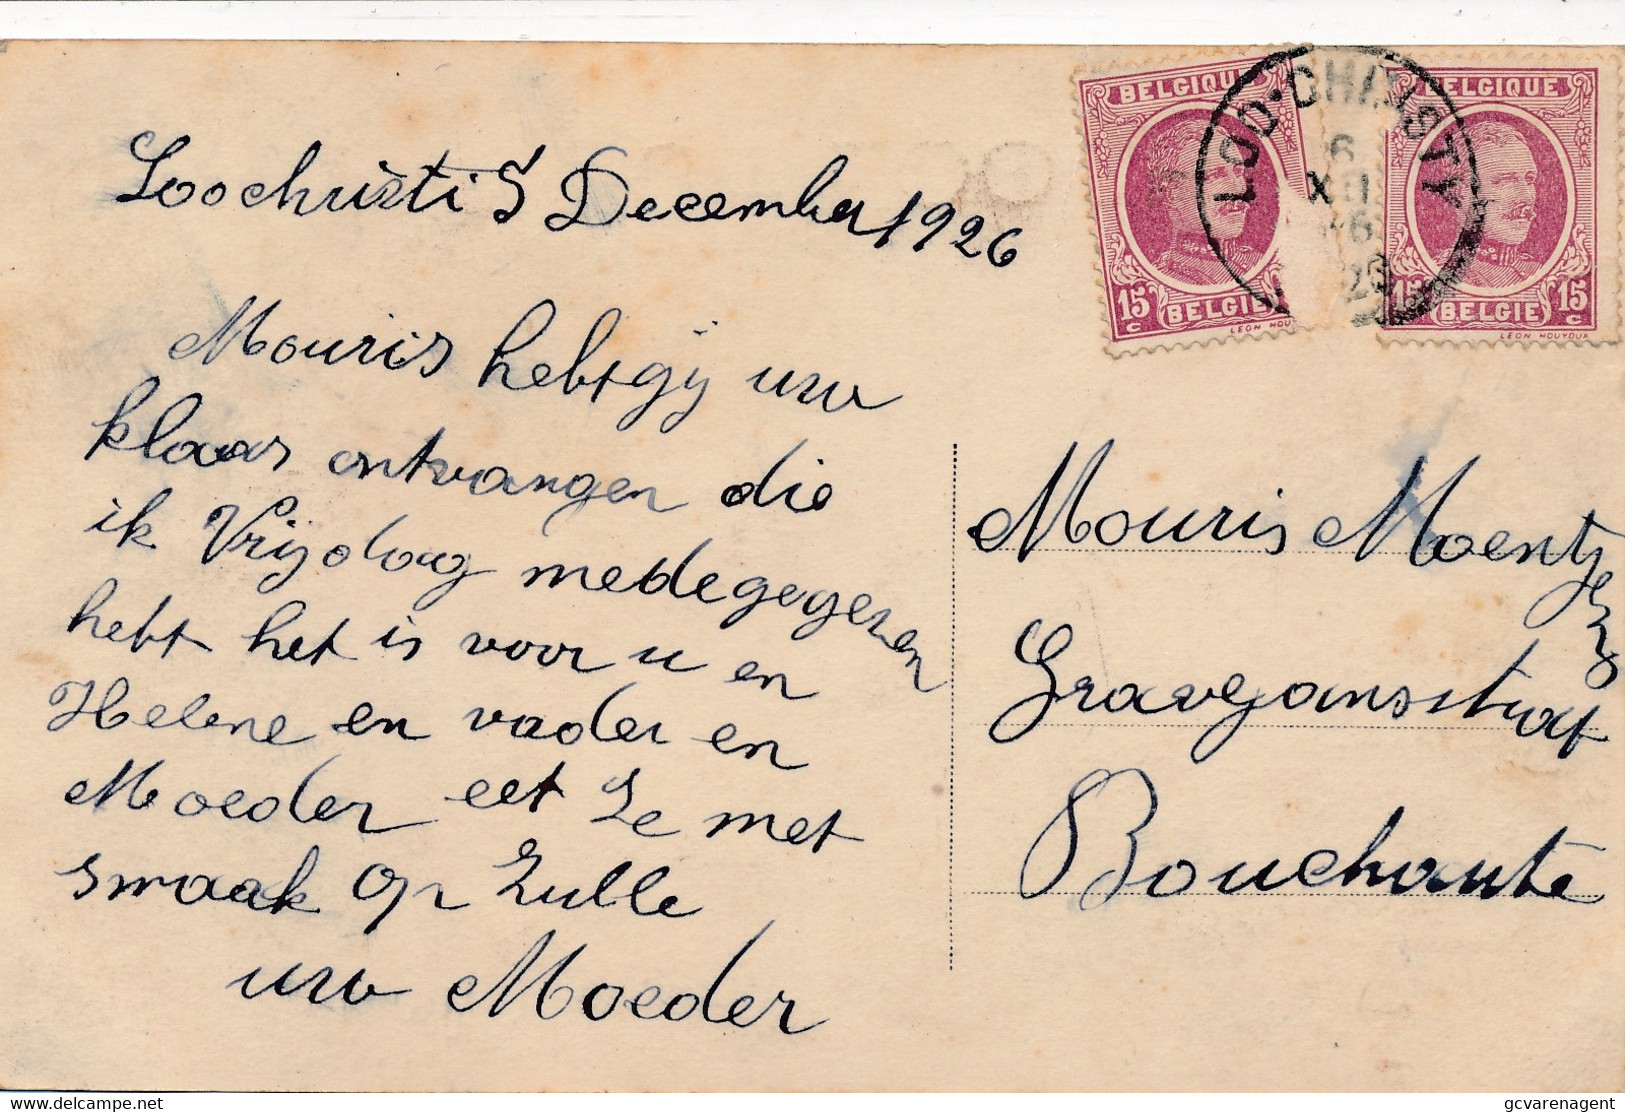 Loochristi 5 December 1926
Mouris hebt gij uw
klaas ontvangen die
ik Vrijdag medegegeven
hebt het is voor u en
Helene en vader en
Moeder eet Ze met
smaak op Zulle
uw Moeder
BELGIQUE
15 c
BELGIE
LEON HOU
LOO-CHRISTY
6
XII
26
BELGIQUE
15 15
c
BELGIE
LEON HOUYOUX
Mouris Moentjens
Gravejansstraat
Bouchaute
www.delcampe.net
gcvarenagent